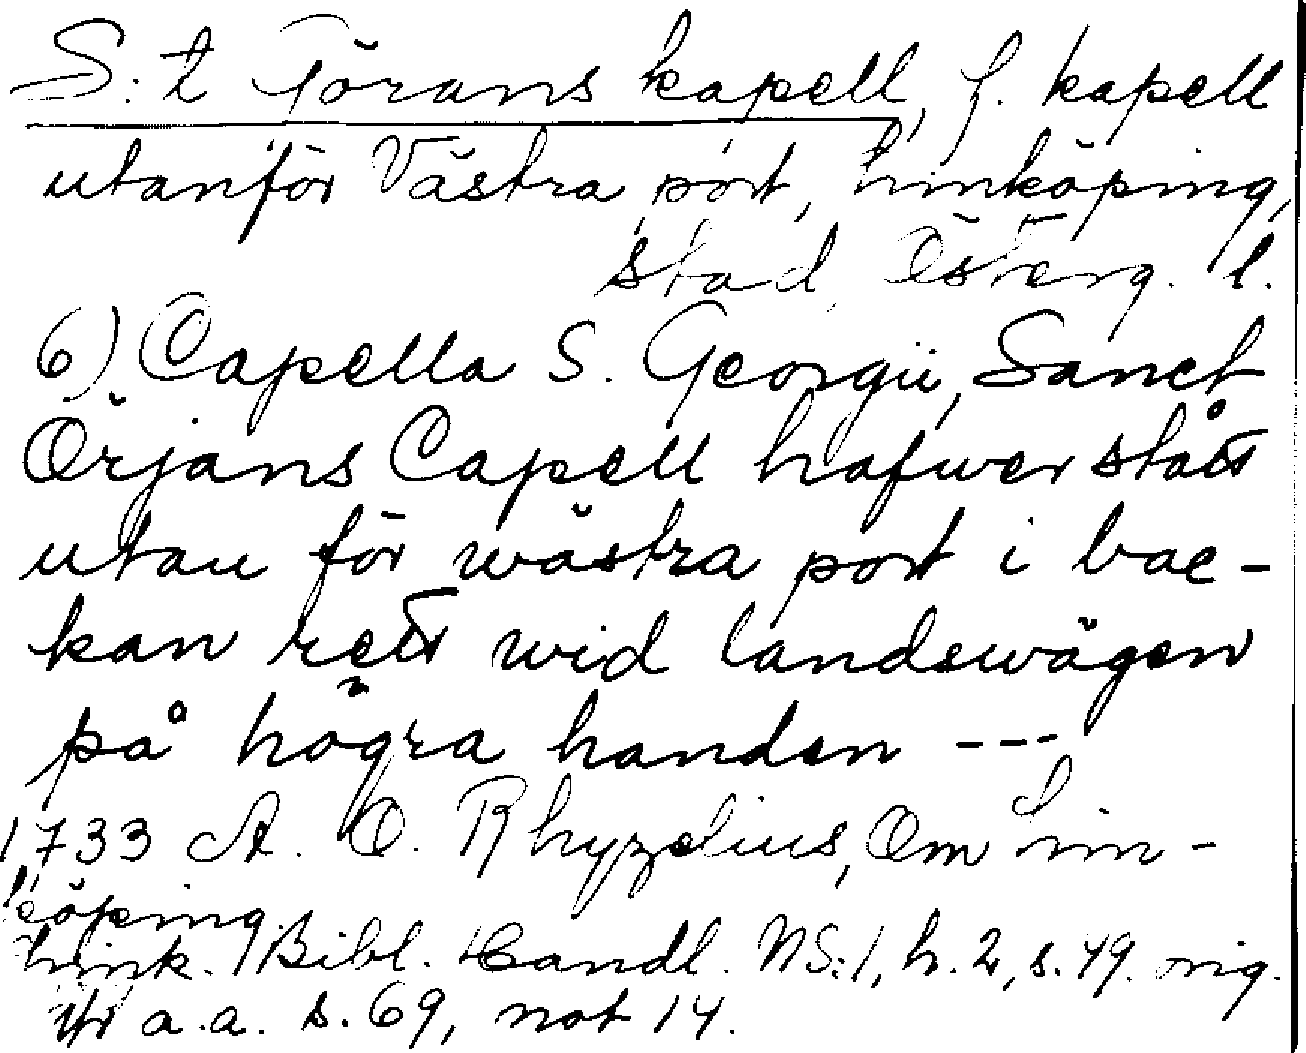 S:t Görans kapell, f. kapell
utanför Västra port, Linköping,
stad, Österg. l.
6) Capella S. Georgii, Sanct
Örjans Capell hafwer stått
utan för wästra port i bac-
kan rett wid landswägen
på högra handen ---
1733 A. O. Rhyzelius, Om Lin-
cöping.
Link. Bibl. Handl. NS:1, h. 2, s. 49. orig.
a.a. s. 69, not 14.